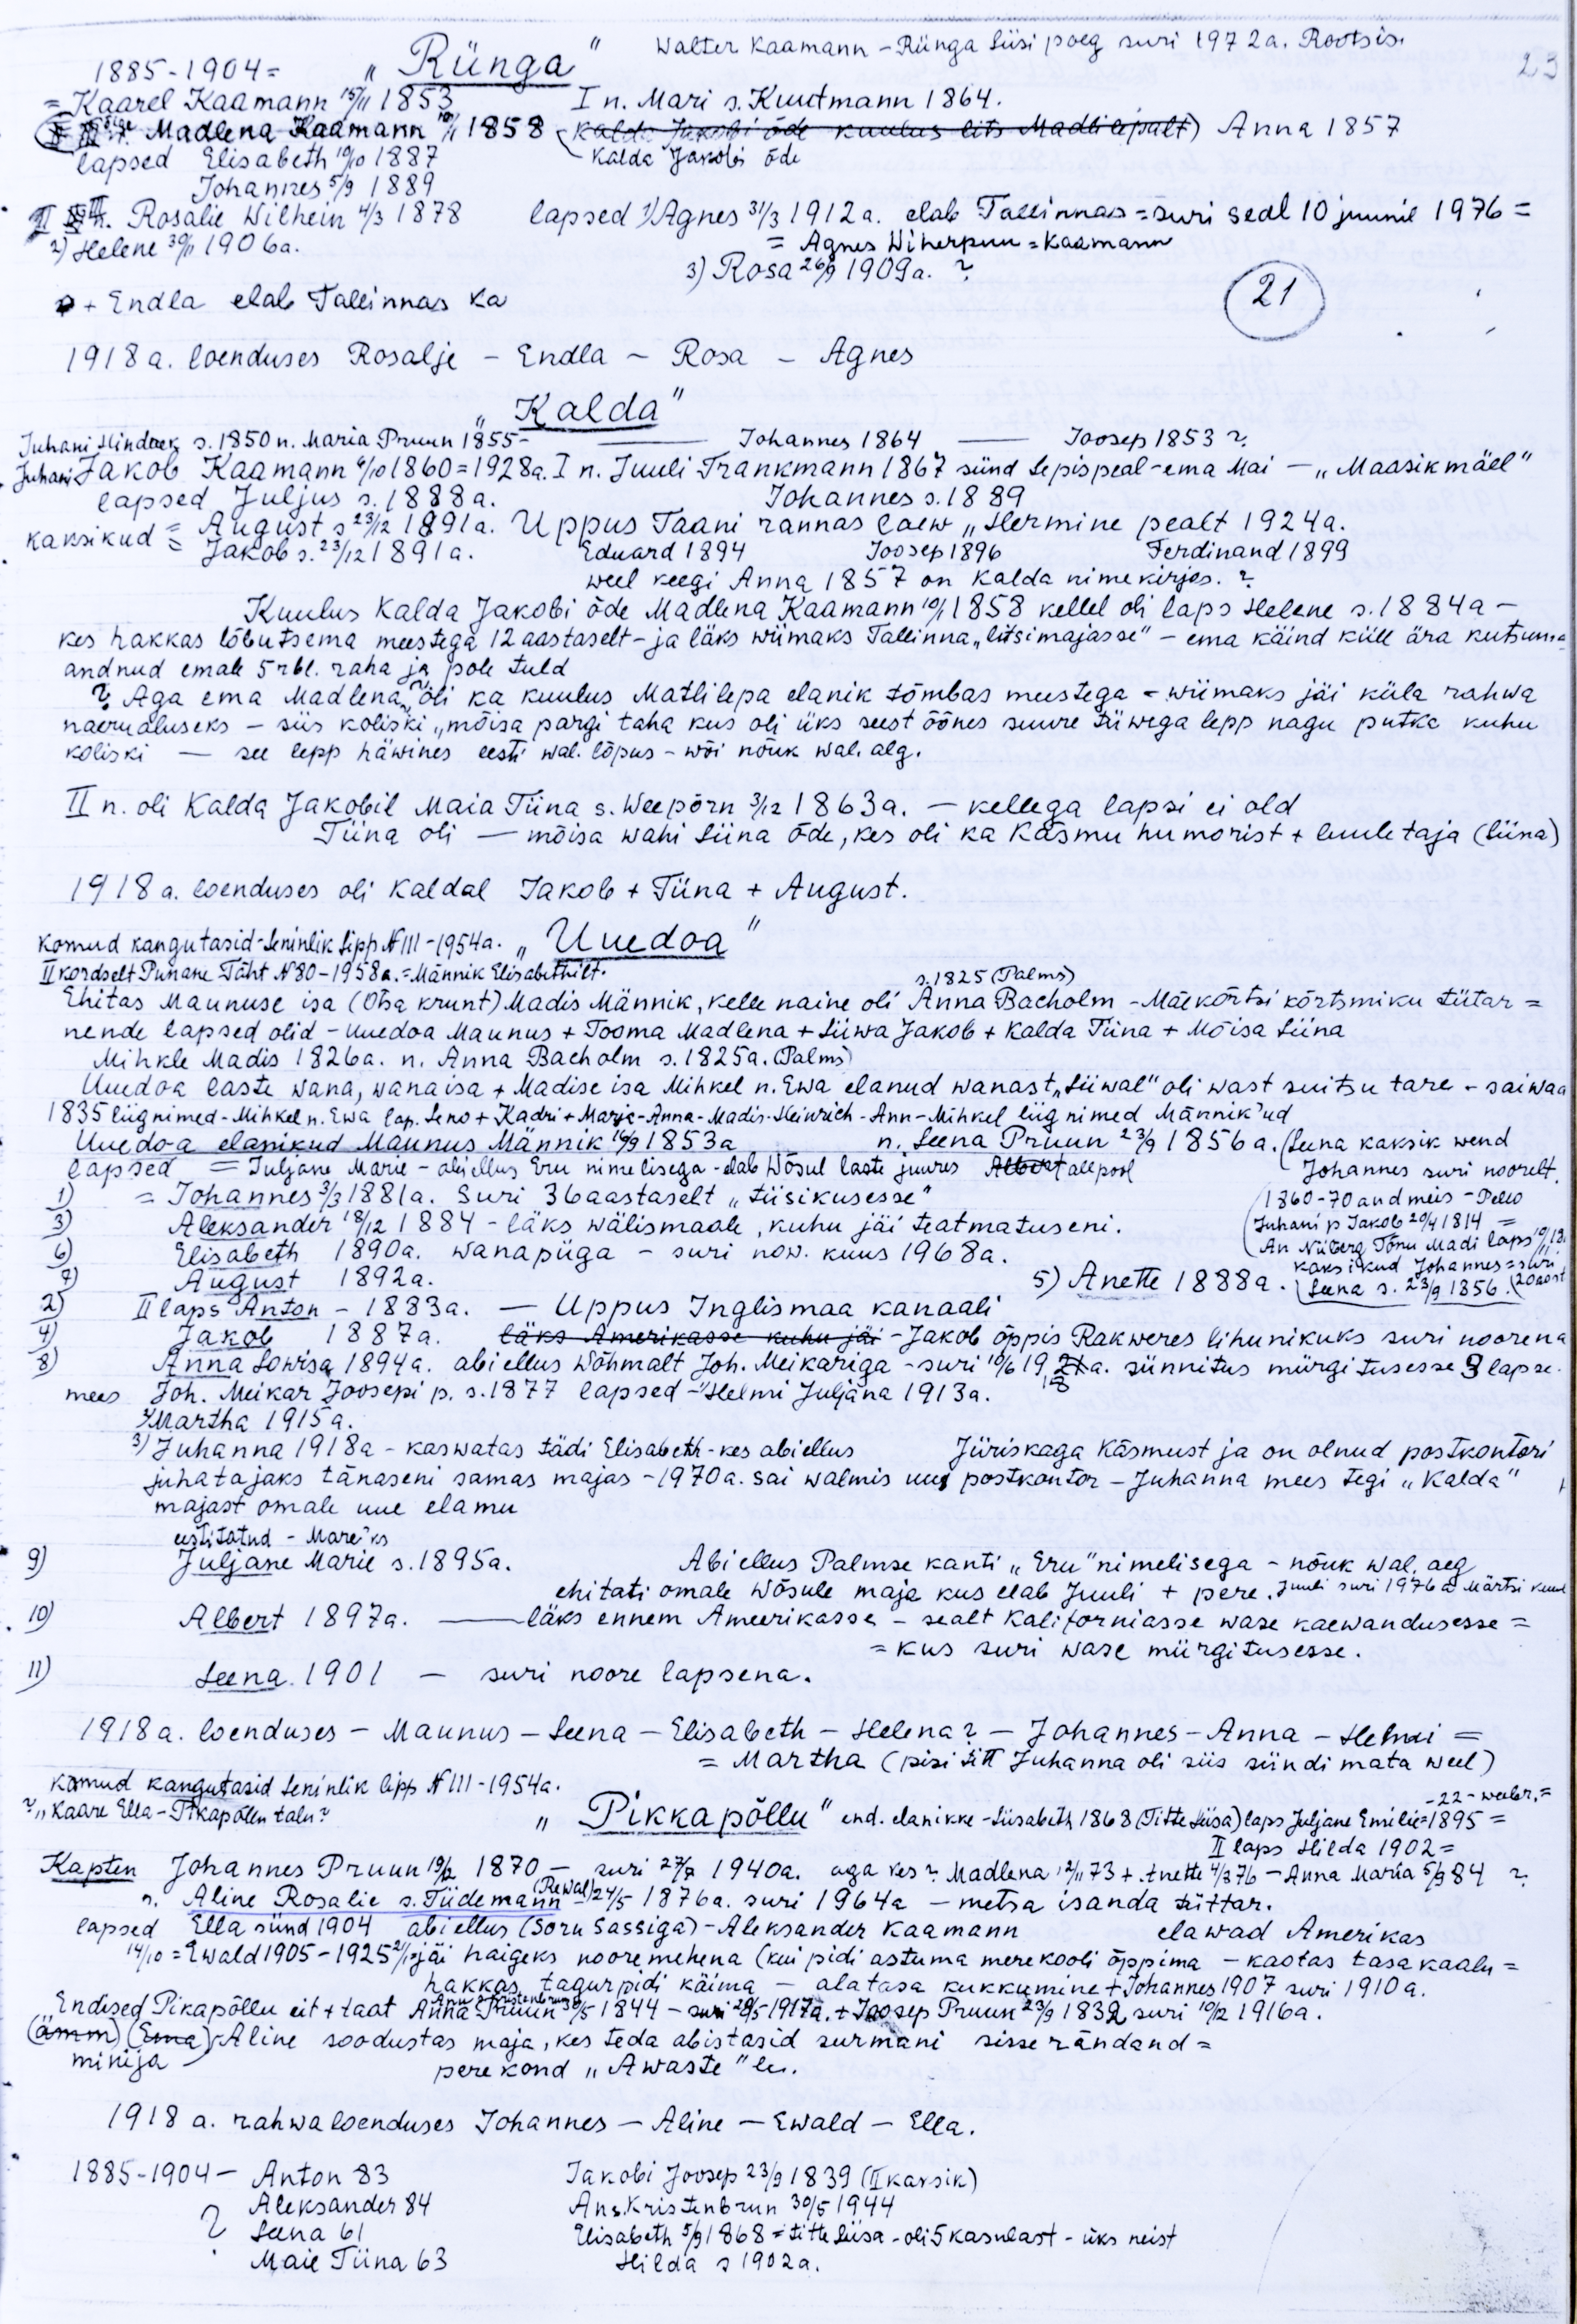 Walter Kaamann - Rünga Siisi poeg suri 1972a. Rootsis.
23
1885-1904= „Rünga"
= Kaarel Kaamann 15/11 1853 I n. Mari s. Kuutmann 1864.
Madlena Kaamann 10/1 1858 (Kalda Jakobi õde kuulus lits Madli lepalt) Anna 1857
lapsed Elisabeth 19/10 1887 Kalda Jakobi õde
Johannes 5/9 1889
II n. Rosalie Wilhein 4/3 1878 lapsed 1) Agnes 31/3 1912a. elab Tallinnas = suri seal 10 juunil 1976 =
2) Helene 30/11 1906a. = Agnes Wiherpuu = Kaamann
3) Rosa 26/9 1909a. ?
+ Endla elab Tallinnas ka
21
1918 a. loenduses Rosalje - Endla - Rosa - Agnes
„Kalda"
Juhani Hindrek s. 1850 n. Maria Pruun 1855- — Johannes 1864 — Joosep 1853 ?
Juhani Jakob Kaamann 6/10 1860 = 1928a. I n. Juuli Trankmann 1867 sünd Sepispeal - ema Mai — „Maasikmäel"
lapsed Juljus s. 1888a. Johannes s. 1889
kaksikud = August s 23/12 1891a. Uppus Taani rannas laew „Hermine pealt 1924a.
= Jakob s. 23/12 1891a. Eduard 1894 Joosep 1896 Ferdinand 1899
weel keegi Anna 1857 on Kalda nimekirjas. ?
Kuulus Kalda Jakobi õde Madlena Kaamann 10/1 1858 kellel oli laps Helene s. 1884a -
kes hakkas lõbutsema meestega 12 aastaselt - ja läks wiimaks Tallinna „litsimajasse" - ema käind küll ära kutsuma
andnud emale 5 rbl. raha ja pole tuld
? Aga ema Madlena „oli ka kuulus Matlilepa elanik tõmbas meestega - wiimaks jäi küla rahwa
naerualuseks - siis koliski „mõisa pargi taha kus oli üks seest õõnes suure tüwega lepp nagu putka kuhu
koliski — see lepp häwines eesti wal. lõpus - wõi nõuk wal. alg.
II n. oli Kalda Jakobil Maia Tiina s. Weepõrn 3/12 1863a. — kellega lapsi ei old
Tiina oli — mõisa wahi Siina õde, kes oli ka Käsmu humorist + luuletaja (Siina)
1918 a. loenduses oli Kaldal Jakob + Tiina + August.
Komud kangutasid - Seninlik Lipp N 111 - 1954a. „Uuedoa"
II kordselt Punane Täht N 80 - 1958a. = Männik Elisabethilt.
s. 1825 (Palms)
Ehitas Maunuse isa (Otsa krunt) Madis Männik, kelle naine oli Anna Bacholm - Mäekõrtsi kõrtsmiku tütar =
nende lapsed olid - Uuedoa Maunus + Tooma Madlena + Liiwa Jakob + Kalda Tiina + Mõisa Siina
Mihkle Madis 1826a. n. Anna Bacholm s. 1825a. (Palms)
Uuedoa laste wana, wanaisa + Madise isa Mihkel n. Ewa elanud wanast „Liiwal" oli wast suitsu tare - saiwad
1835 liignimed - Mihkel n. Ewa lap. Leno + Kadri + Marie - Anna - Madis - Heinrich - Ann - Mihkel liig nimed Männik'ud
Uuedoa elanikud Maunus Männik 16/9 1853a n. Leena Pruun 23/9 1856a. (Leena kaksik wend
lapsed = Juljane Marie - abiellus Eru nimelisega - elab Wõsul laste juures Albert allpool Johannes suri noorelt.
1) = Johannes 3/3 1881a. Suri 36 aastaselt „tiisikusesse" 1860-70 andmeis - Pello
3) Aleksander 18/12 1884 - läks wälismaale, kuhu jäi teatmatuseni. Juhani p Jakob 20/4 1814 =
6) Elisabeth 1890a. wanapiiga - suri now. kuus 1968a. An Niiberg Tõnu Madi laps
7) August 1892a. 5) Anette 1888a. kaksikud Johannes = suri
2) II laps Anton - 1883a. — Uppus Inglismaa kanaali Leena s. 23/9 1856. (20 aast
4) Jakob 1887a. läks Amerikasse kuhu jäi - Jakob õppis Rakweres lihunikuks suri noorena
8) Anna Lowisa 1894a. abiellus Wõhmalt Joh. Meikariga - suri 10/6 1918 a. sünnitus mürgitusesse 3 lapse.
mees Joh. Meikar Joosepi p. s. 1877 lapsed - 1) Helmi Juljana 1913a.
2) Martha 1915a.
3) Juhanna 1918a - kaswatas tädi Elisabeth - kes abiellus Jüriskaga Käsmust ja on olnud postkontori
juhatajaks tänaseni samas majas - 1970a. sai walmis uus postkontor - Juhanna mees tegi „Kalda"
majast omale uue elamu
eestitatud - Mare'ks
9) Juljane Marie s. 1895a. Abiellus Palmse kanti „Eru" nimelisega - nõuk wal. aeg
ehitati omale Wõsule maja kus elab Juuli + pere. Juuli suri 1976a Märtsi kuul
10) Albert 1897a. — läks ennem Ameerikasse - sealt Kaliforniasse wase kaewandusesse =
= kus suri wase mürgitusesse.
11) Leena 1901 — suri noore lapsena.
1918a. loenduses - Maunus - Leena - Elisabeth - Helena? - Johannes - Anna - Helmi =
= Martha (pisi titt Juhanna oli siis sündimata weel)
Komud kangutasid Seninlik lipp N 111 - 1954a.
?„Kaare Ella - Pikapõllu talu? „Pikkapõllu" end. elanikke - Liisabeth 1868 (Titte Liisa) laps Juljane Emilie = 1895 =
-22-weebr. =
II laps Hilda 1902 =
Kapten Johannes Pruun 19/2 1870 — suri 27/7 1940a. aga kes? Madlena 12/11 73 + Anette 4/3 76 - Anna Maria 5/9 84 ?
n. Aline Rosalie s. Tiidemann (Rewal) 24/5 1876a. suri 1964a — metsa isanda tüttar.
lapsed Ella sünd 1904 abiellus (Soru Sassiga) - Aleksander Kaamann elawad Amerikas
14/10 = Ewald 1905 - 1925 jäi haigeks nooremehena (kui pidi astuma merekooli õppima - kaotas tasakaalu =
hakkas tagurpidi käima — alatasa kukkumine + Johannes 1907 suri 1910a.
Endised Pikapõllu eit + taat Anna Pruun 30/5 1844 - suri 28/5 1917a. + Joosep Pruun 23/9 1839 suri 10/12 1916a.
(ämm) (Ema) Aline soodustas maja, kes teda abistasid surmani sisse rändand =
minija perekond „Awaste" le.
1918 a. rahwaloenduses Johannes — Aline — Ewald — Ella.
1885-1904 — Anton 83 Jakobi Joosep 23/9 1839 (II kaksik)
Aleksander 84 Ans. Kristenbrun 30/5 1944
? Leena 61 Elisabeth 5/9 1868 = titte Liisa - oli 5 kasulast - üks neist
Maie Tiina 63 Hilda s 1902a.